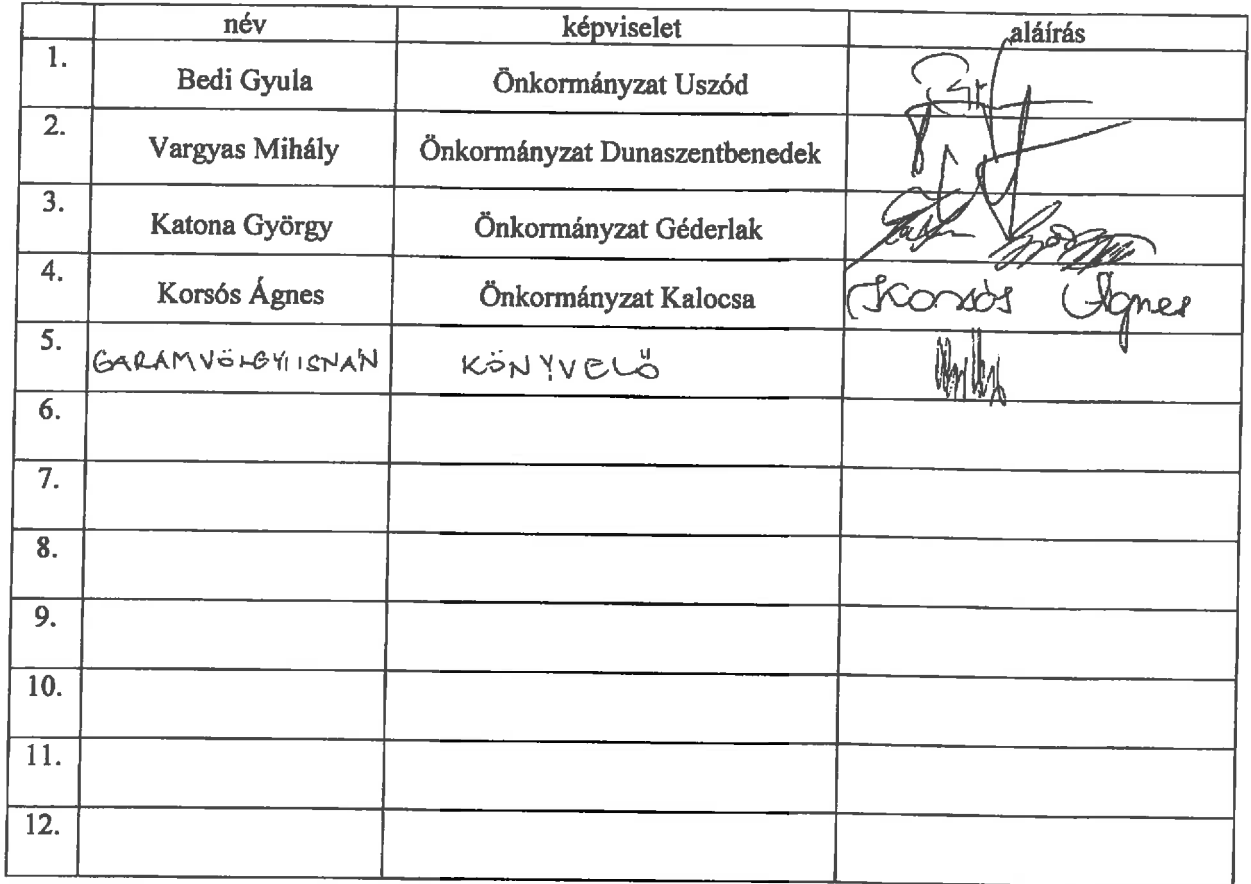 név képviselet aláírás
1. Bedi Gyula Önkormányzat Uszód
2. Vargyas Mihály Önkormányzat Dunaszentbenedek
3. Katona György Önkormányzat Géderlak
4. Korsós Ágnes Önkormányzat Kalocsa Korsós Ágnes
5. GARAMVÖLGYI KÖNYVELŐ
6.
7.
8.
9.
10.
11.
12.